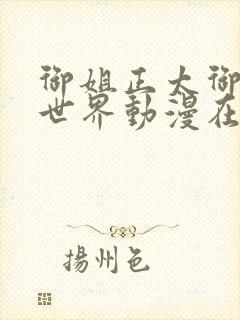 御姐正太御
世界動漫在
揚州色